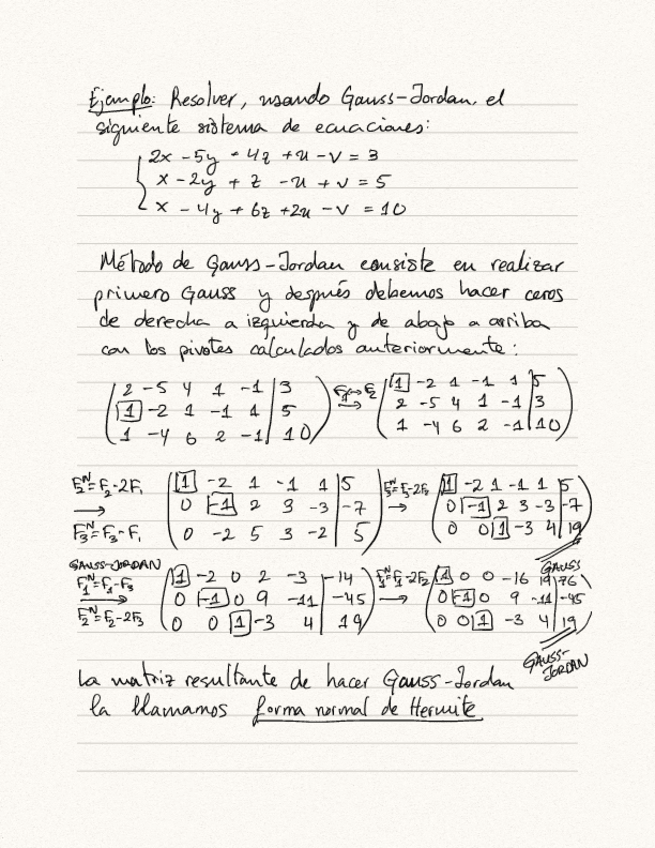 Ejemplo: Resolver, usando Gauss-Jordan, el
siguiente sistema de ecuaciones:
2x - 5y + 4z + u - v = 3
x - 2y + z - u + v = 5
x - 4y + 6z + 2u - v = 10
Método de Gauss-Jordan consiste en realizar
primero Gauss y después debemos hacer ceros
de derecha a izquierda y de abajo a arriba
con los pivotes calculados anteriormente:
2 -5 4 1 -1 | 3 F1 ↔ F2 1 -2 1 -1 1 | 5
1 -2 1 -1 1 | 5 → 2 -5 4 1 -1 | 3
1 -4 6 2 -1 | 10 1 -4 6 2 -1 | 10
F2^N = F2 - 2F1 1 -2 1 -1 1 | 5 F3^N = F3 - 2F2 1 -2 1 -1 1 | 5
→ 0 -1 2 3 -3 | -7 → 0 -1 2 3 -3 | -7
F3^N = F3 - F1 0 -2 5 3 -2 | 5 0 0 1 -3 4 | 19
GAUSS
GAUSS-JORDAN
F1^N = F1 - F3 1 -2 0 2 -3 | -14 F1^N = F1 - 2F2 1 0 0 -16 19 | 76
→ 0 -1 0 9 -11 | -45 → 0 -1 0 9 -11 | -45
F2^N = F2 - 2F3 0 0 1 -3 4 | 19 0 0 1 -3 4 | 19
GAUSS-
JORDAN
La matriz resultante de hacer Gauss-Jordan
la llamamos forma normal de Hermite